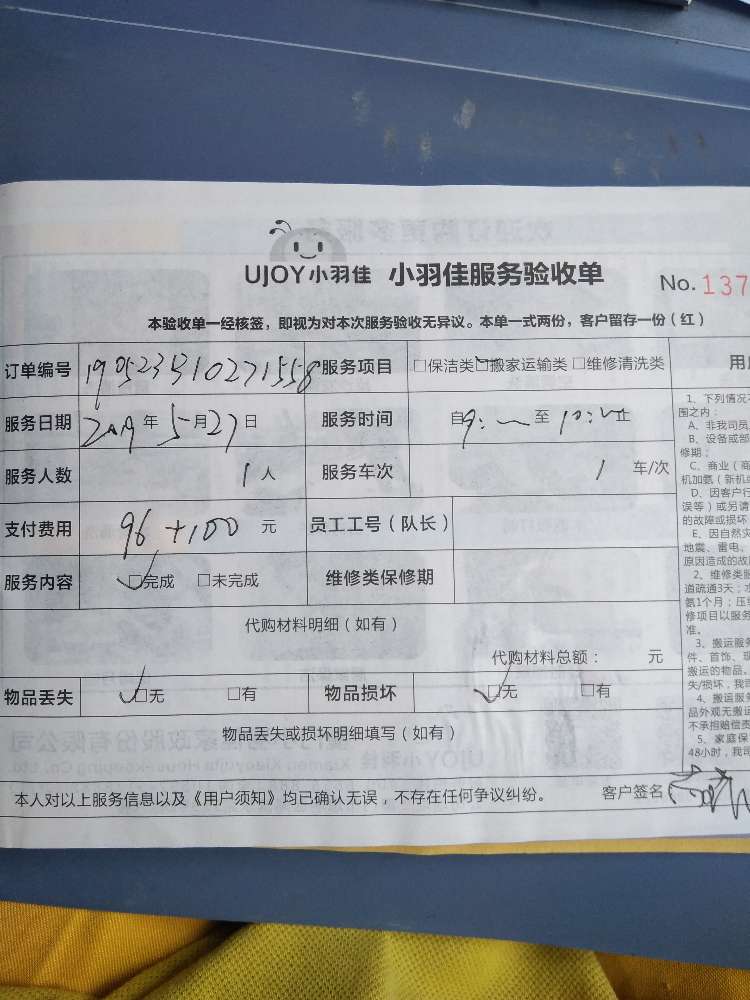 UJOY小羽佳 小羽佳服务验收单
No. 137
本验收单一经核签，即视为对本次服务验收无异议。本单一式两份，客户留存一份（红）
订单编号 服务项目 □保洁类 □搬家运输类 □维修清洗类
服务日期 2019年5月27日 服务时间 自9: 至10: 止
服务人数 1人 服务车次 1车/次
支付费用 96+100元 员工工号（队长）
服务内容 ☑完成 □未完成 维修类保修期
代购材料明细（如有）
代购材料总额： 元
物品丢失 ☑无 □有 物品损坏 ☑无 □有
物品丢失或损坏明细填写（如有）
本人对以上服务信息以及《用户须知》均已确认无误，不存在任何争议纠纷。 客户签名
用户
1、下列情况
围之内：
A、非我司员
B、设备或部
修期；
C、商业（商
机加氨（新机
D、因客户行
误等）或另请
的故障或损坏
E、因自然灾
地震、雷电、
原因造成的故
2、维修类服
道疏通3天；水
氨1个月；压
修项目以服务
准。
3、搬运服务
件、首饰、现
搬运的物品，
失/损坏，我司
4、搬运服务
品外观无搬运
不承担赔偿责
5、家庭保
48小时，我司